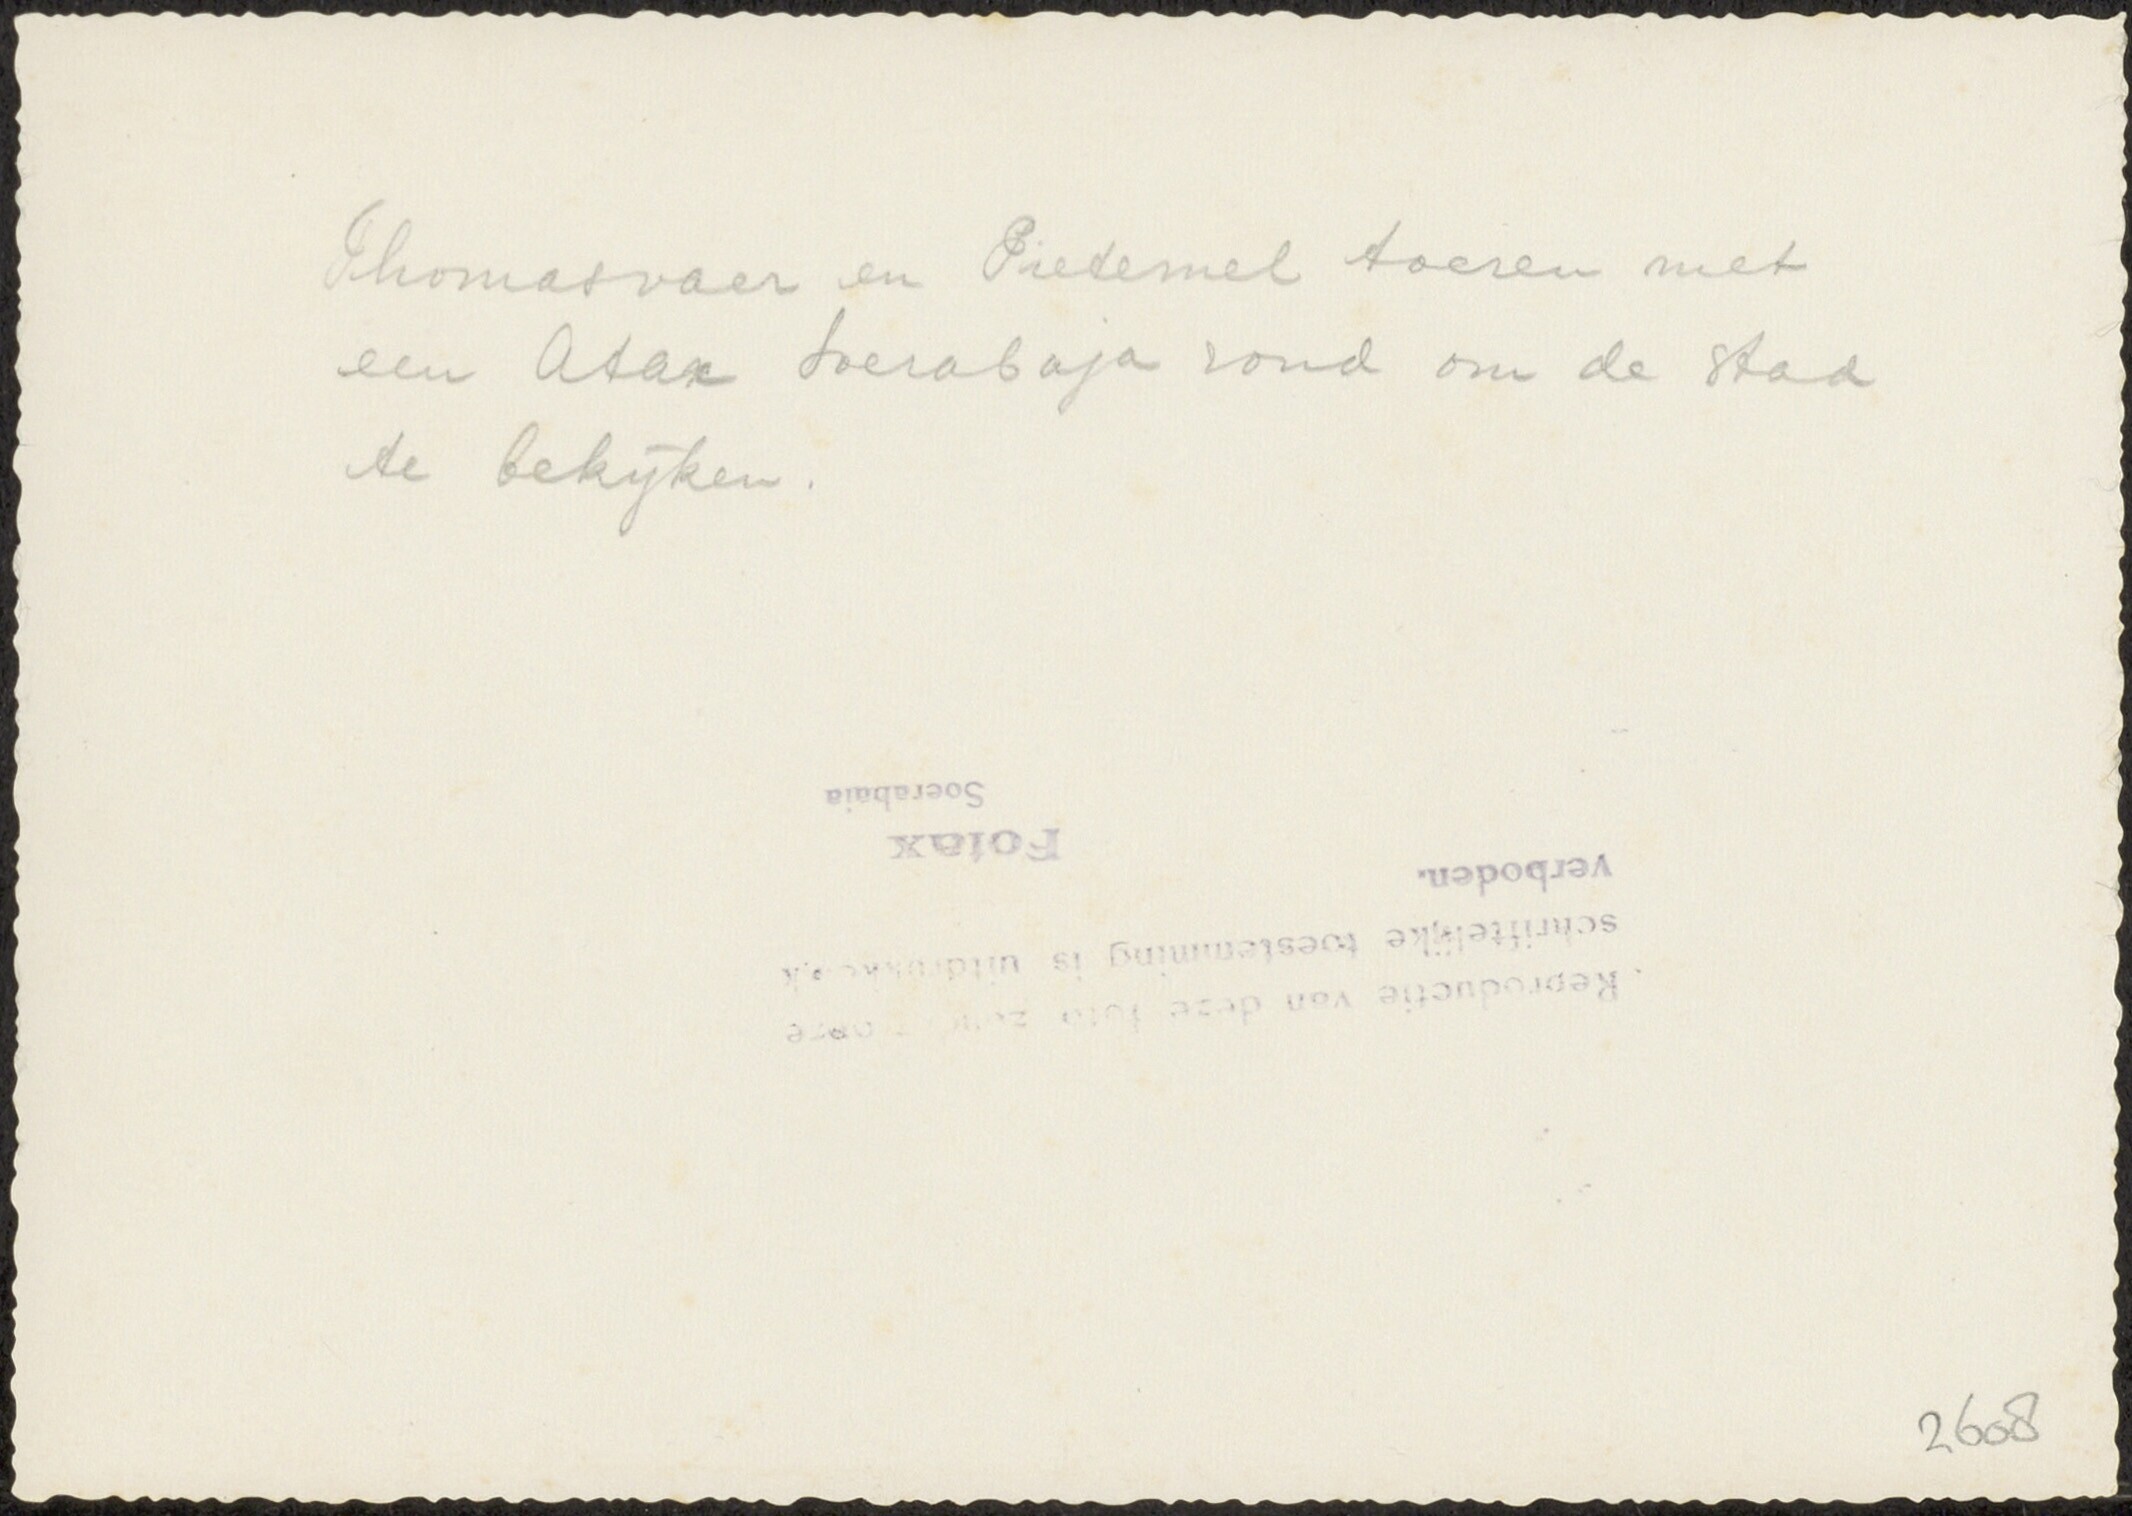 Thomasvaer en Pieternel toeren met
een Atax Soerabaja rond om de stad
te bekijken.
Reproductie van deze foto onze
schriftelijke toestemming is
verboden.
Fotax
Soerabaia
2608